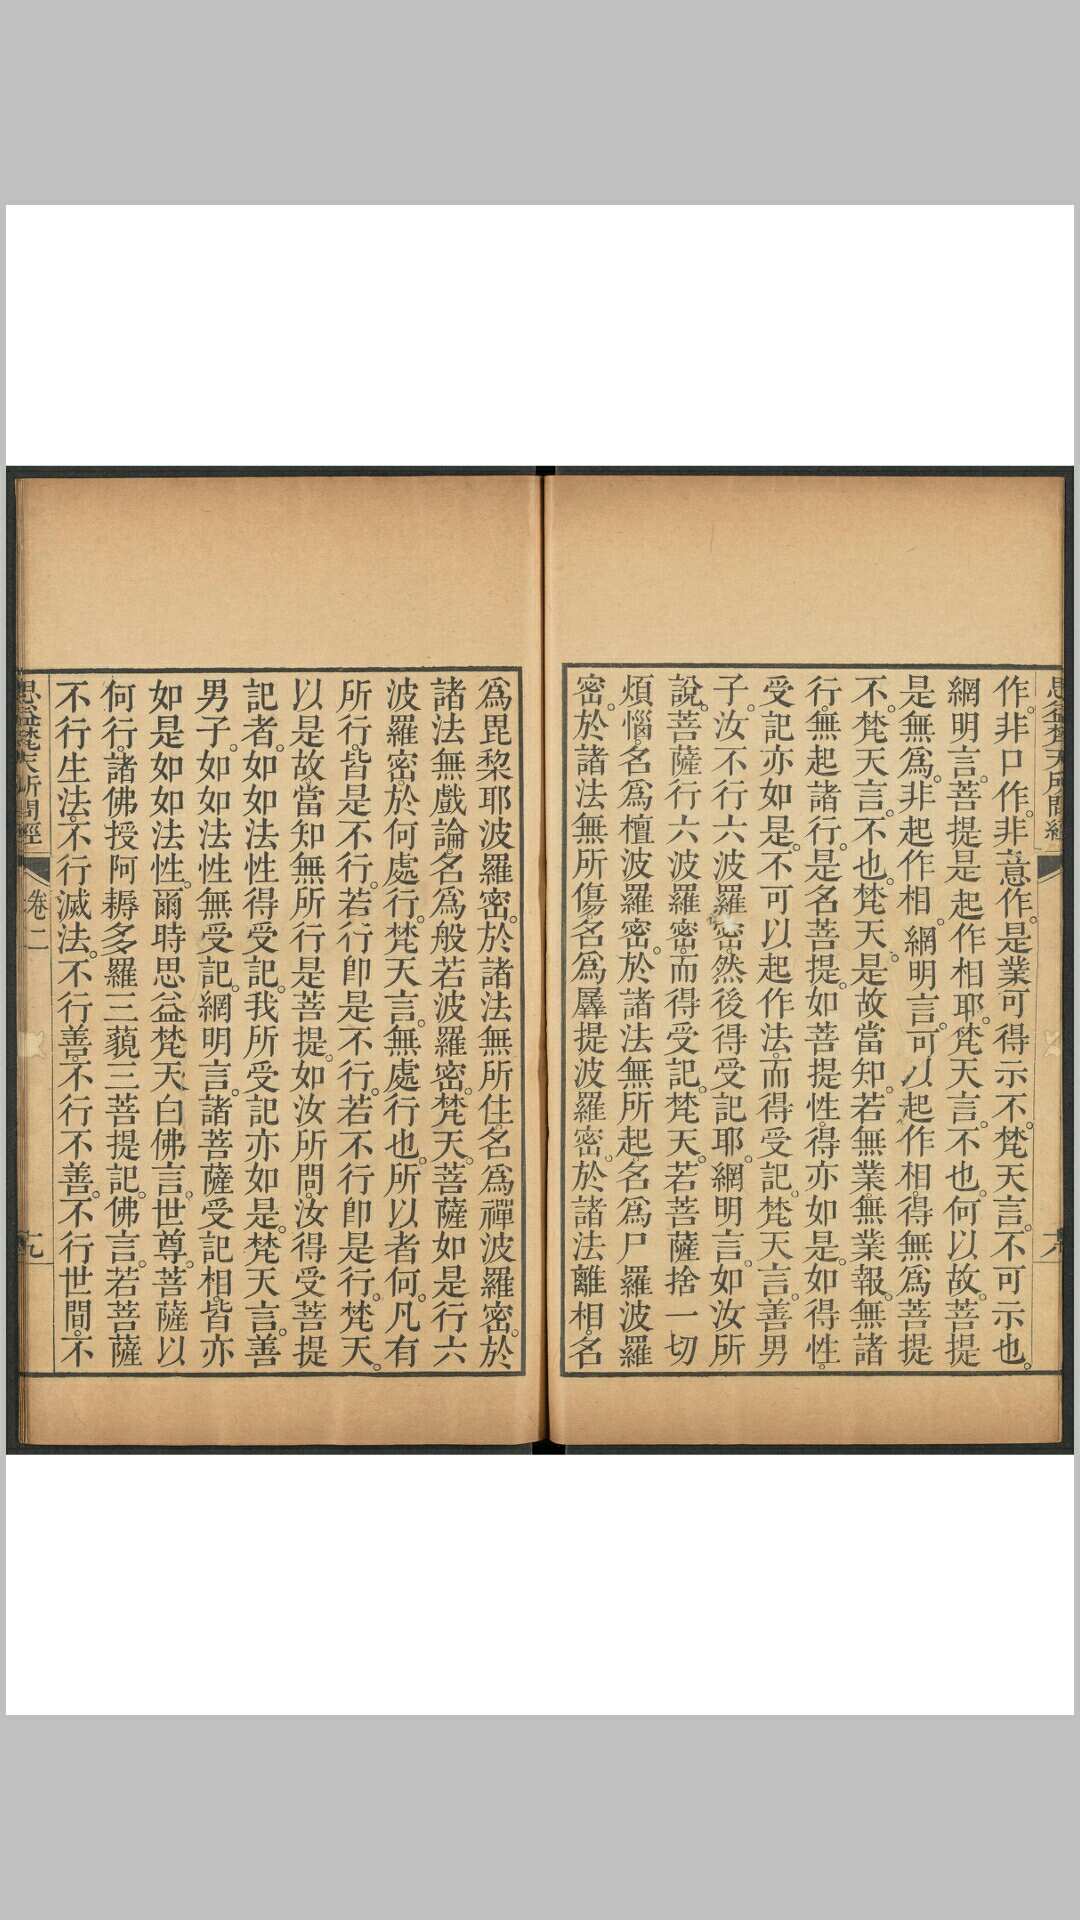 思益梵天所問經
作。非口作。非意作。是業可得示不。梵天言。不可示也。
網明言。菩提是起作相耶。梵天言。不也。何以故。菩提
是無爲。非起作相。網明言。可以起作相。得無爲菩提
不。梵天言。不也。梵天。是故當知。若無業無業報。無諸
行。無起諸行。是名菩提。如菩提性。得亦如是。如得性。
受記亦如是。不可以起作法。而得受記。梵天言。善男
子。汝不行六波羅密。然後得受記耶。網明言。如汝所
說。菩薩行六波羅密。而得受記。梵天。若菩薩捨一切
煩惱。名爲檀波羅密。於諸法無所起。名爲尸羅波羅
密。於諸法無所傷。名爲羼提波羅密。於諸法離相。名
爲毘棃耶波羅密。於諸法無所住。名爲禪波羅密。於
諸法無戲論。名爲般若波羅密。梵天。菩薩如是行六
波羅密。於何處行。梵天言。無處行也。所以者何。凡有
所行。皆是不行。若行卽是不行。若不行卽是行。梵天。
以是故當知無所行是菩提。如汝所問。汝得受菩提
記者。如如法性得受記。我所受記亦如是。梵天言。善
男子。如如法性無受記。網明言。諸菩薩受記相。皆亦
如是如法性。爾時思益梵天白佛言。世尊。菩薩以
何行。諸佛授阿耨多羅三藐三菩提記。佛言。若菩薩
不行生法。不行滅法。不行善。不行不善。不行世間。不
思益梵天所問經
卷二
十九